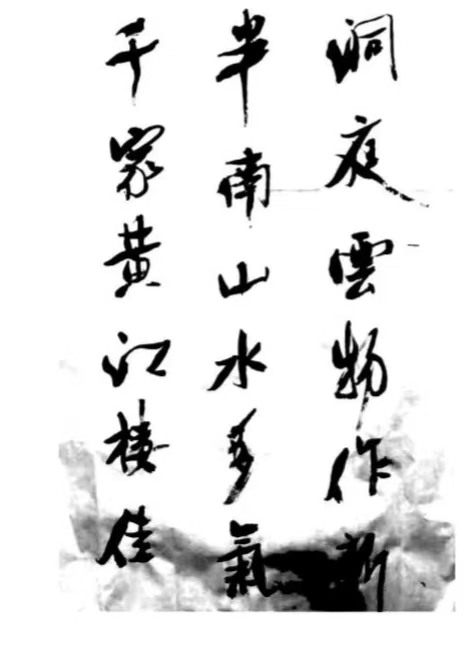 洞庭雲物作新
半南山水多氣
千家黃江樓佳